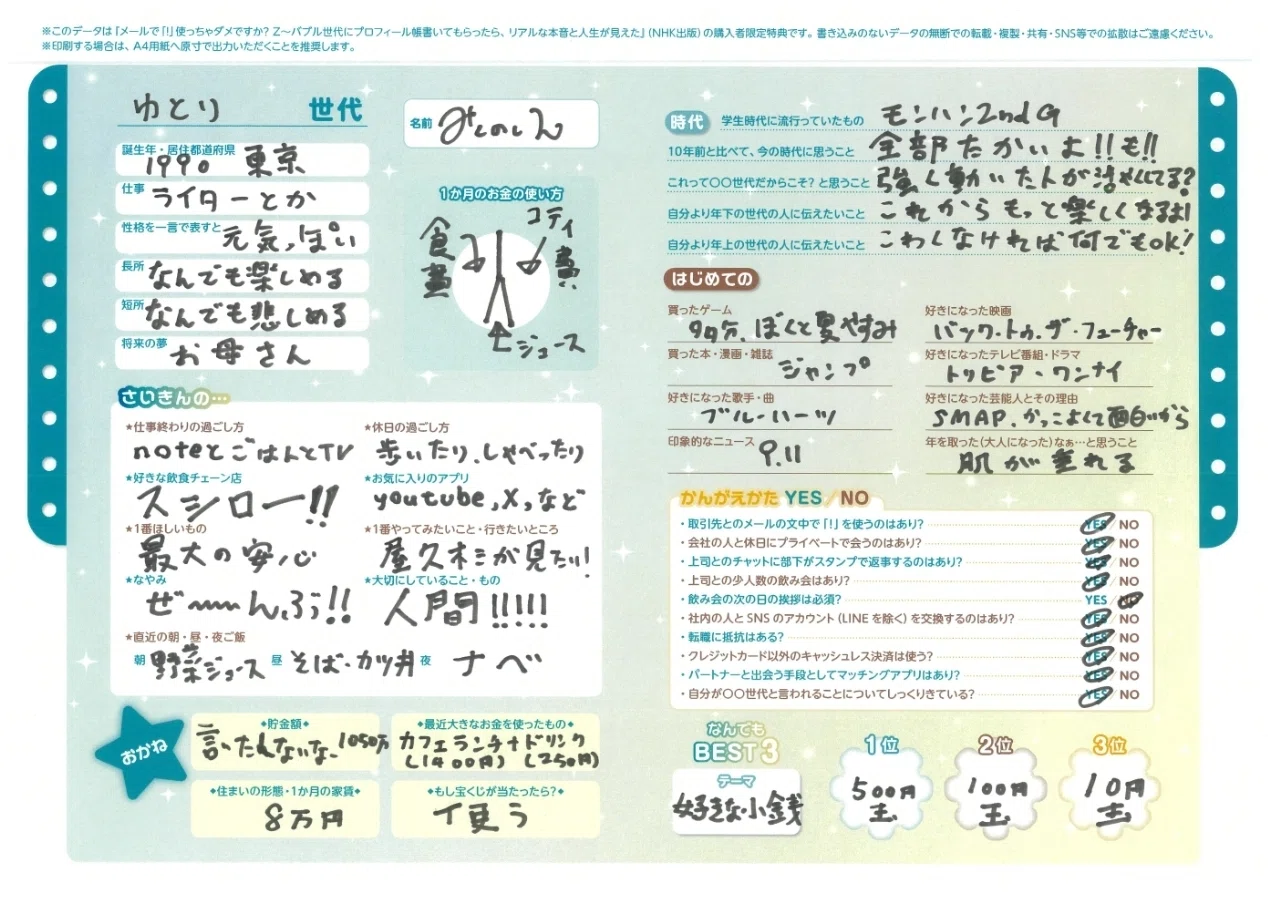 ※このデータは「メールで「!」使っちゃダメですか? Z〜バブル世代にプロフィール帳書いてもらったら、リアルな本音と人生が見えた」(NHK出版)の購入者限定特典です。書き込みのないデータの無断での転載・複製・共有・SNS等での拡散はご遠慮ください。
※印刷する場合は、A4用紙へ原寸で出力いただくことを推奨します。
ゆとり 世代
名前 みくのしん
誕生年・居住都道府県 1990 東京
仕事 ライターとか
性格を一言で表すと 元気っぽい
長所 なんでも楽しめる
短所 なんでも悲しめる
将来の夢 お母さん
1か月のお金の使い方
食費
コテイ費
ジュース
さいきんの…
★仕事終わりの過ごし方
noteとごはんとTV
★休日の過ごし方
歩いたり、しゃべったり
★好きな飲食チェーン店
スシロー!!
★お気に入りのアプリ
youtube,X,など
★1番ほしいもの
最大の安心
★1番やってみたいこと・行きたいところ
屋久杉が見たい!
★なやみ
ぜ〜〜ん、ぶぅ!!
★大切にしていること・もの
人間!!!!!
★直近の朝・昼・夜ご飯
朝 野菜ジュース 昼 そば・カツ丼 夜 ナベ
おかね
◆貯金額◆
言いたくないな、1050万
◆最近大きなお金を使ったもの◆
カフェランチ+ドリンク
(1400円) (250円)
◆住まいの形態・1か月の家賃◆
8万円
◆もし宝くじが当たったら?◆
使う
時代
学生時代に流行っていたもの モンハン2ndG
10年前と比べて、今の時代に思うこと 全部たかいよ!!も!!
これって〇〇世代だからこそ?と思うこと 強く動いた人が活やくしてる?
自分より年下の世代の人に伝えたいこと これからもっと楽しくなるよ!
自分より年上の世代の人に伝えたいこと こわくなければ何でもOK!
はじめての
買ったゲーム
多分、ぼくと夏やすみ
好きになった映画
バック・トゥ・ザ・フューチャー
買った本・漫画・雑誌
ジャンプ
好きになったテレビ番組・ドラマ
トリビア・ワンナイ
好きになった歌手・曲
ブルーハーツ
好きになった芸能人とその理由
SMAP.かっこよくて面白いから
印象的なニュース
9.11
年を取った(大人になった)なぁ…と思うこと
肌が垂れる
かんがえかた YES/NO
・取引先とのメールの文中で「!」を使うのはあり? YES NO
・会社の人と休日にプライベートで会うのはあり? YES NO
・上司とのチャットに部下がスタンプで返事するのはあり? YES NO
・上司との少人数の飲み会はあり? YES NO
・飲み会の次の日の挨拶は必須? YES NO
・社内の人とSNSのアカウント(LINEを除く)を交換するのはあり? YES NO
・転職に抵抗はある? YES NO
・クレジットカード以外のキャッシュレス決済は使う? YES NO
・パートナーと出会う手段としてマッチングアプリはあり? YES NO
・自分が〇〇世代と言われることについてしっくりきている? YES NO
なんでも
BEST3
テーマ
好きな小銭
1位
500円
玉
2位
100円
玉
3位
10円
玉